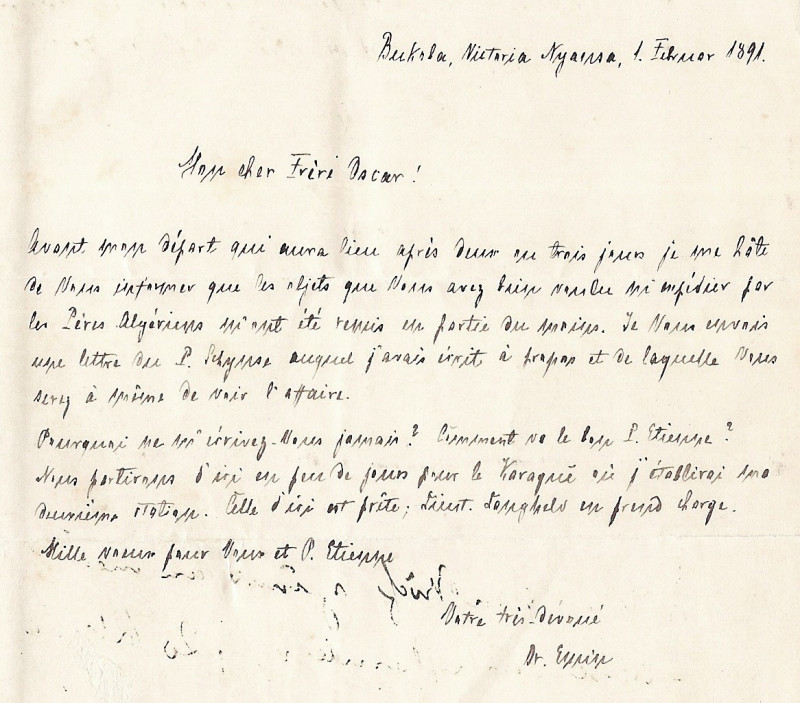 Bukoba, Victoria Nyansa, 1. Februar 1891.
Mon cher Frère Oscar!
Avant mon départ qui aura lieu après deux ou trois jours je me hâte
de Vous informer que les objets que Vous avez bien voulu m'expédier par
les Pères Algériens m'ont été remis en partie du moins. Je Vous envois
une lettre du P. Schynse auquel j'avais écrit à propos et de laquelle Vous
serez à même de voir l'affaire.
Pourquoi ne m'écrivez-Vous jamais? Comment va le bon P. Etienne?
Nous partirons d'ici en peu de jours pour le Karagué où j'établirai ma
deuxième station. Celle d'ici est prête; Lieut. Langheld en prend charge.
Mille voeux pour Vous et P. Etienne
Votre très-dévoué
Dr. Emin